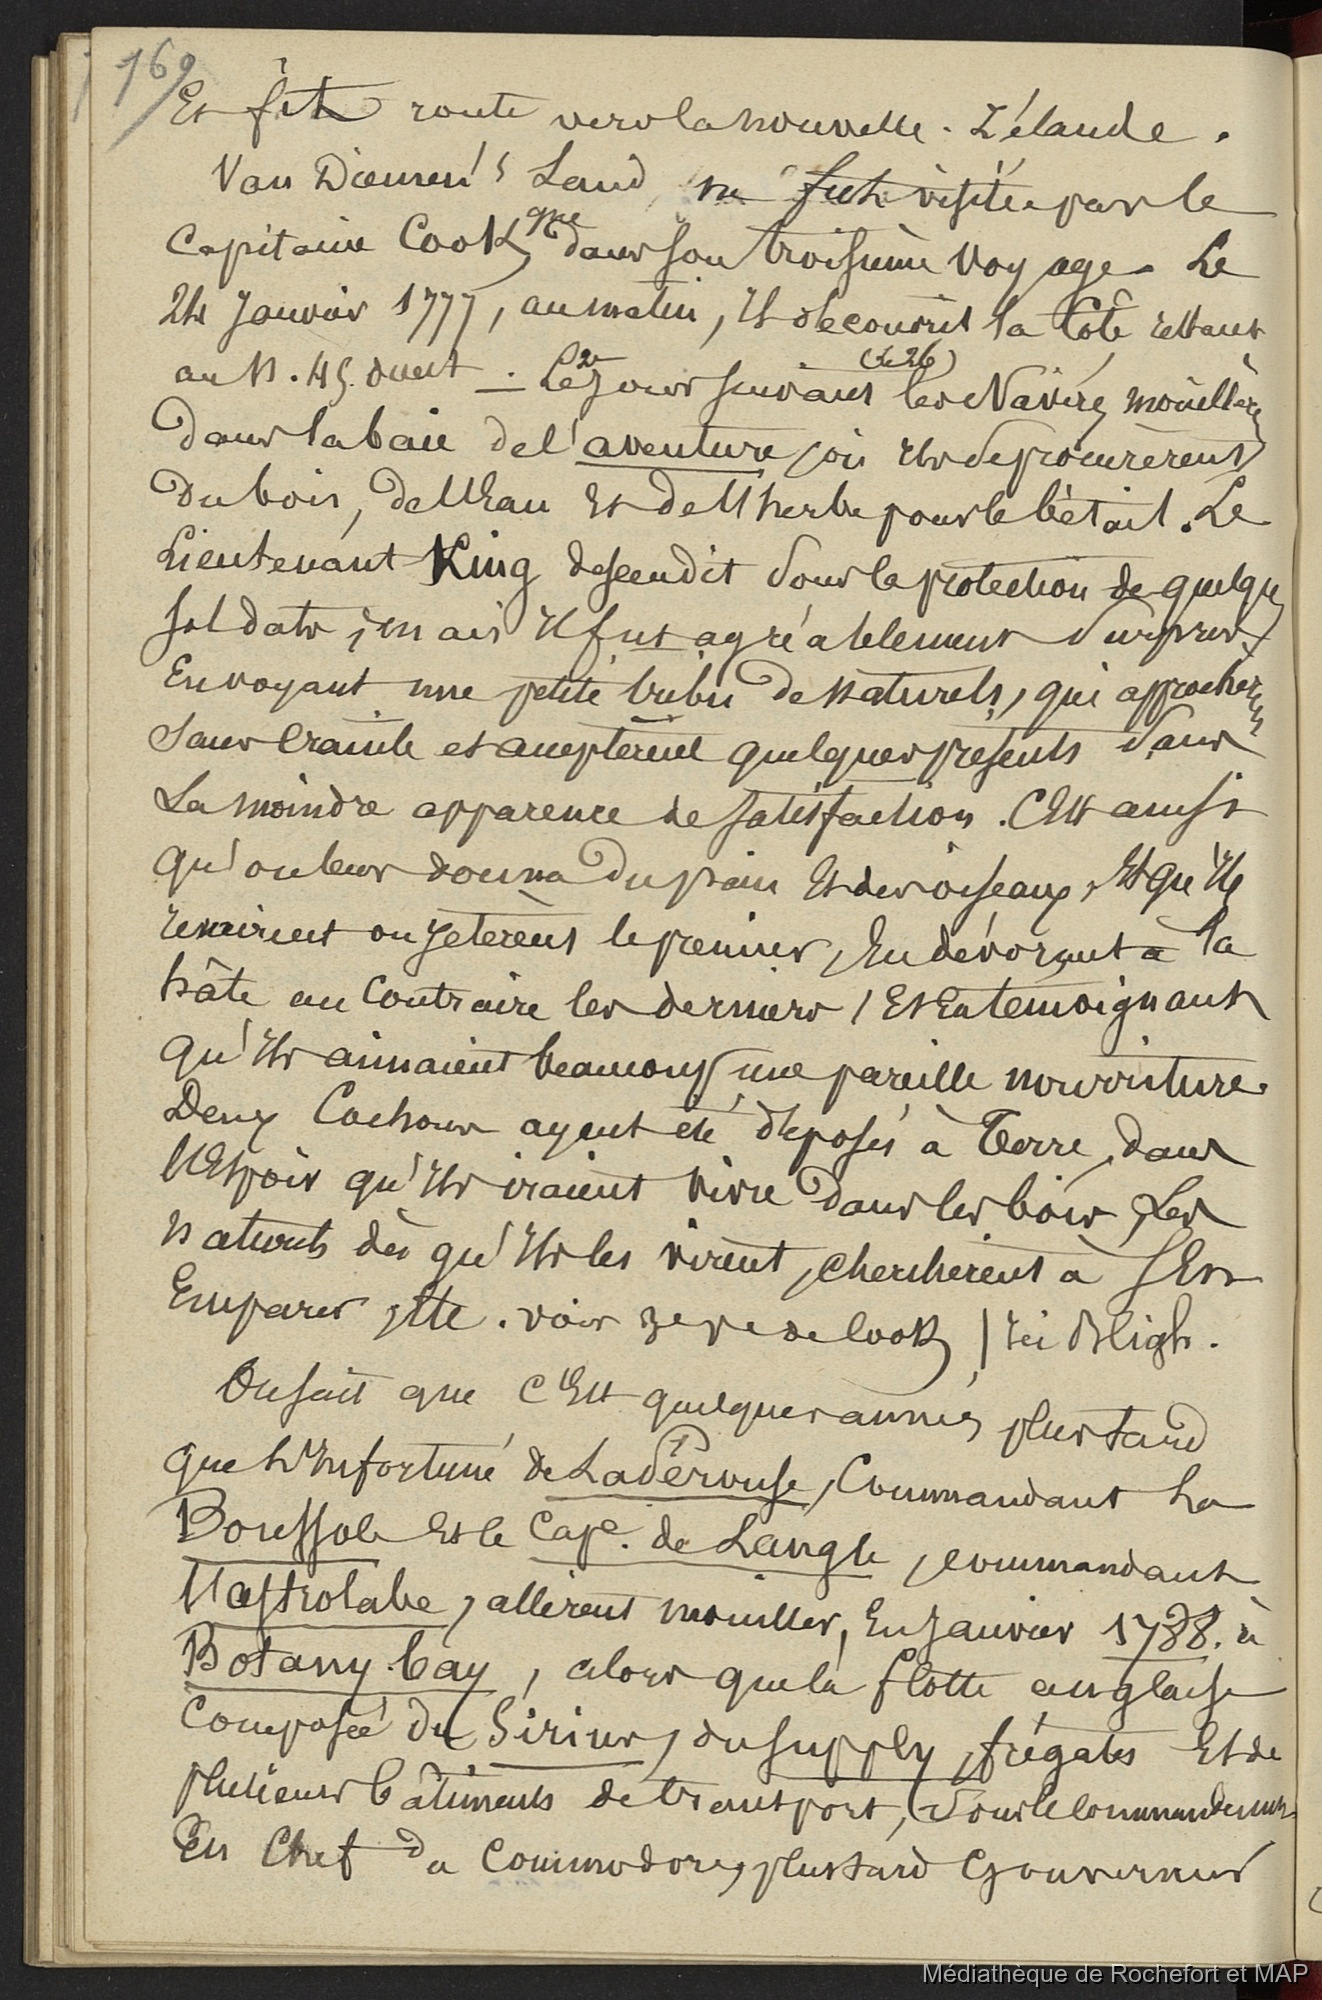 169
Et fit route vers la nouvelle. Zélande.
Van Diemen's Land, ne fut visitée par le
Capitaine Cook, que dans son troisième Voyage. Le
24 Janvier 1777, au matin, Il découvrit la Côte restant
au N. 45. ouest — Le 2e Jour suivant (Le 26) les Navires mouillèrent
Dans la baie de l'aventure, où Ils se procurèrent
Du bois, de l'Eau Et de l'herbe pour le bétail. Le
Lieutenant King descendit sous la protection de quelques
soldats; mais Il fut agréablement surpris
En voyant une petite tribu de naturels, qui approchèrent
sans crainte et acceptèrent quelques présents sans
La moindre apparence de satisfaction. C'Est ainsi
qu'on leur donna du pain Et des oiseaux, Et qu'Ils
rendirent ou Jetèrent le premier, En dévorant à la
hâte au Contraire les derniers, Et En témoignant
qu'Ils aimaient beaucoup une pareille nourriture.
Deux Cochons ayant été déposés à Terre, dans
l'Espoir qu'Ils iraient vivre Dans les bois, Les
naturels dès qu'Ils les virent, cherchèrent à s'En
Emparer, Etc. voir de Cook, Ici Bligh.
On sait que c'Est quelques années plus tard
que L'Infortuné de La Pérouse, Commandant La
Boussole Et le Cape. de Langle, commandant
l'astrolabe, allèrent mouiller, En Janvier 1788. à
Botany-bay, alors que la flotte anglaise
Composée du Sirius, du Supply, frégates Et de
plusieurs bâtiments de transport, sous le commandement
En Chef du Commodore, plus tard Gouverneur
Médiathèque de Rochefort et MAP